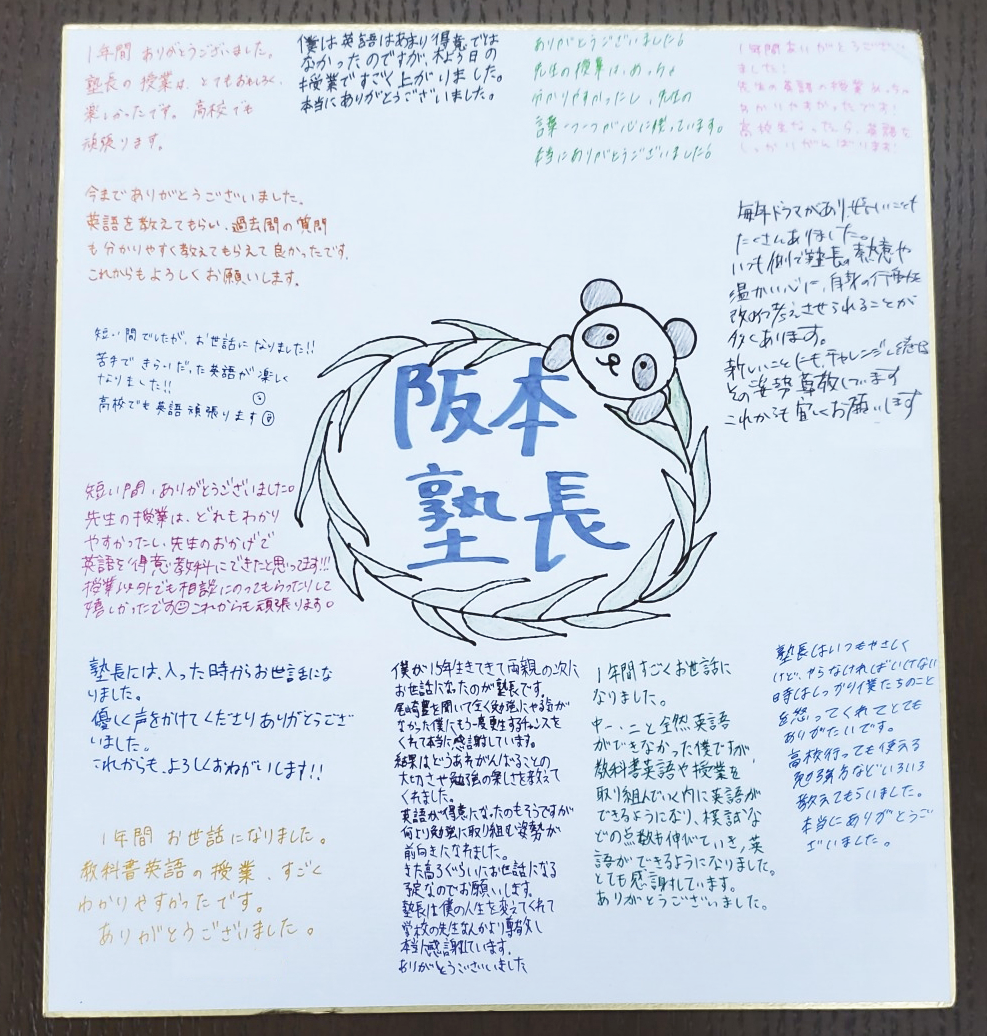 1年間 ありがとうございました。
塾長の授業は、とてもおもしろく、
楽しかったです。高校でも
頑張ります。
僕は英語はあまり得意では
なかったのですが、木よう日の
授業ですごく上がりました。
本当にありがとうございました。
ありがとうございました!
先生の授業は、めっちゃ
わかりやすかったし、先生の
言葉一つ一つが心に残っています。
本当にありがとうございました!
1年間ありがとうござい
ました!
先生の英語の授業めっちゃ
わかりやすかったです!
高校生なったら、英語を
しっかりがんばります!
今までありがとうございました。
英語を教えてもらい、過去問の質問
も分かりやすく教えてもらえて良かったです。
これからもよろしくお願いします。
毎年ドラマがあり、嬉しいことも
たくさんありました。
いつも側で塾長の熱意や
温かい心に、自身の行動を
改めて考えさせられることが
多くあります。
新しいことにもチャレンジし続ける
その姿勢尊敬しています
これからも宜しくお願いします
短い間でしたが、お世話になりました!!
苦手できらいだった英語が楽しく
なりました!!
高校でも英語頑張ります
阪本
塾長
短い間、ありがとうございました。
先生の授業は、どれもわかり
やすかったし、先生のおかげで
英語を得意教科にできたと思ってます!!!
授業以外でも相談にのってもらったりして
嬉しかったです これからも頑張ります。
塾長には、入った時からお世話にな
りました。
優しく声をかけてくださりありがとうござ
いました。
これからも、よろしくおねがいします!!
1年間 お世話になりました。
教科書英語の授業、すごく
わかりやすかったです。
ありがとうございました。
僕が15年生きてきて両親の次に
お世話になったのが塾長です。
尾崎塾を聞いて全く勉強にやる気が
なかった僕にもう一度更生するチャンスを
くれて本当に感謝しています。
結果はどうあれがんばることの
大切さや勉強の楽しさを教えて
くれました。
英語が得意になったのもそうですが
何より勉強に取り組む姿勢が
前向きになれました。
また高3ぐらいにお世話になる
予定なのでお願いします。
塾長は僕の人生を変えてくれて
学校の先生なんかより尊敬し
本当に感謝しています。
ありがとうございました
1年間すごくお世話に
なりました。
中一、二と全然英語
ができなかった僕ですが、
教科書英語や授業を
取り組んでいく内に英語が
できるようになり、模試な
どの点数も伸びていき、英
語ができるようになりました。
とても感謝しています。
ありがとうございました。
塾長はいつもやさしく
けど、やらなければいけない
時はしっかり僕たちのこと
を怒ってくれてとても
ありがたいです。
高校行っても使える
勉強方などいろいろ
教えてもらいました。
本当にありがとうご
ざいました。